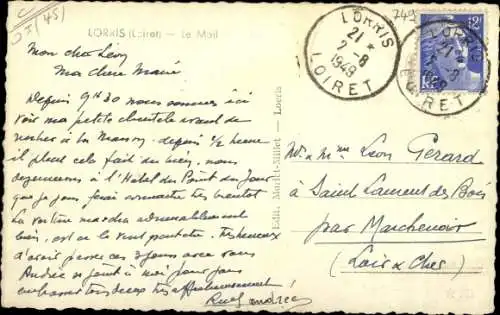 LORRIS (Loiret) - Le Mail
Mon cher Léon
Ma chère Marie
Depuis 9H30 nous sommes ici
voir ma petite clientèle avant de
rentrer à la Maison. depuis 1/2 heure
il pleut cela fait du bien. nous
déjeunerons à l'Hotel du Point du Jour
que je vous ferai connaitre très bientot
La voiture marche admirablement
bien, est ce le vent peut etre. Très heureux
d'avoir passé ces 2 jours avec vous
Andrée se joint à moi pour vous
embrasser tous deux très affectueusement
Andrée
Edit. Marcel-Millet - Lorris
LORRIS
21 *
2-8
1949
LOIRET
LORRIS
21 *
2-8
1949
LOIRET
Mr & Mme Léon Gerard
à Saint Laurent des Bois
par Marchenoir
(Loir & Cher)